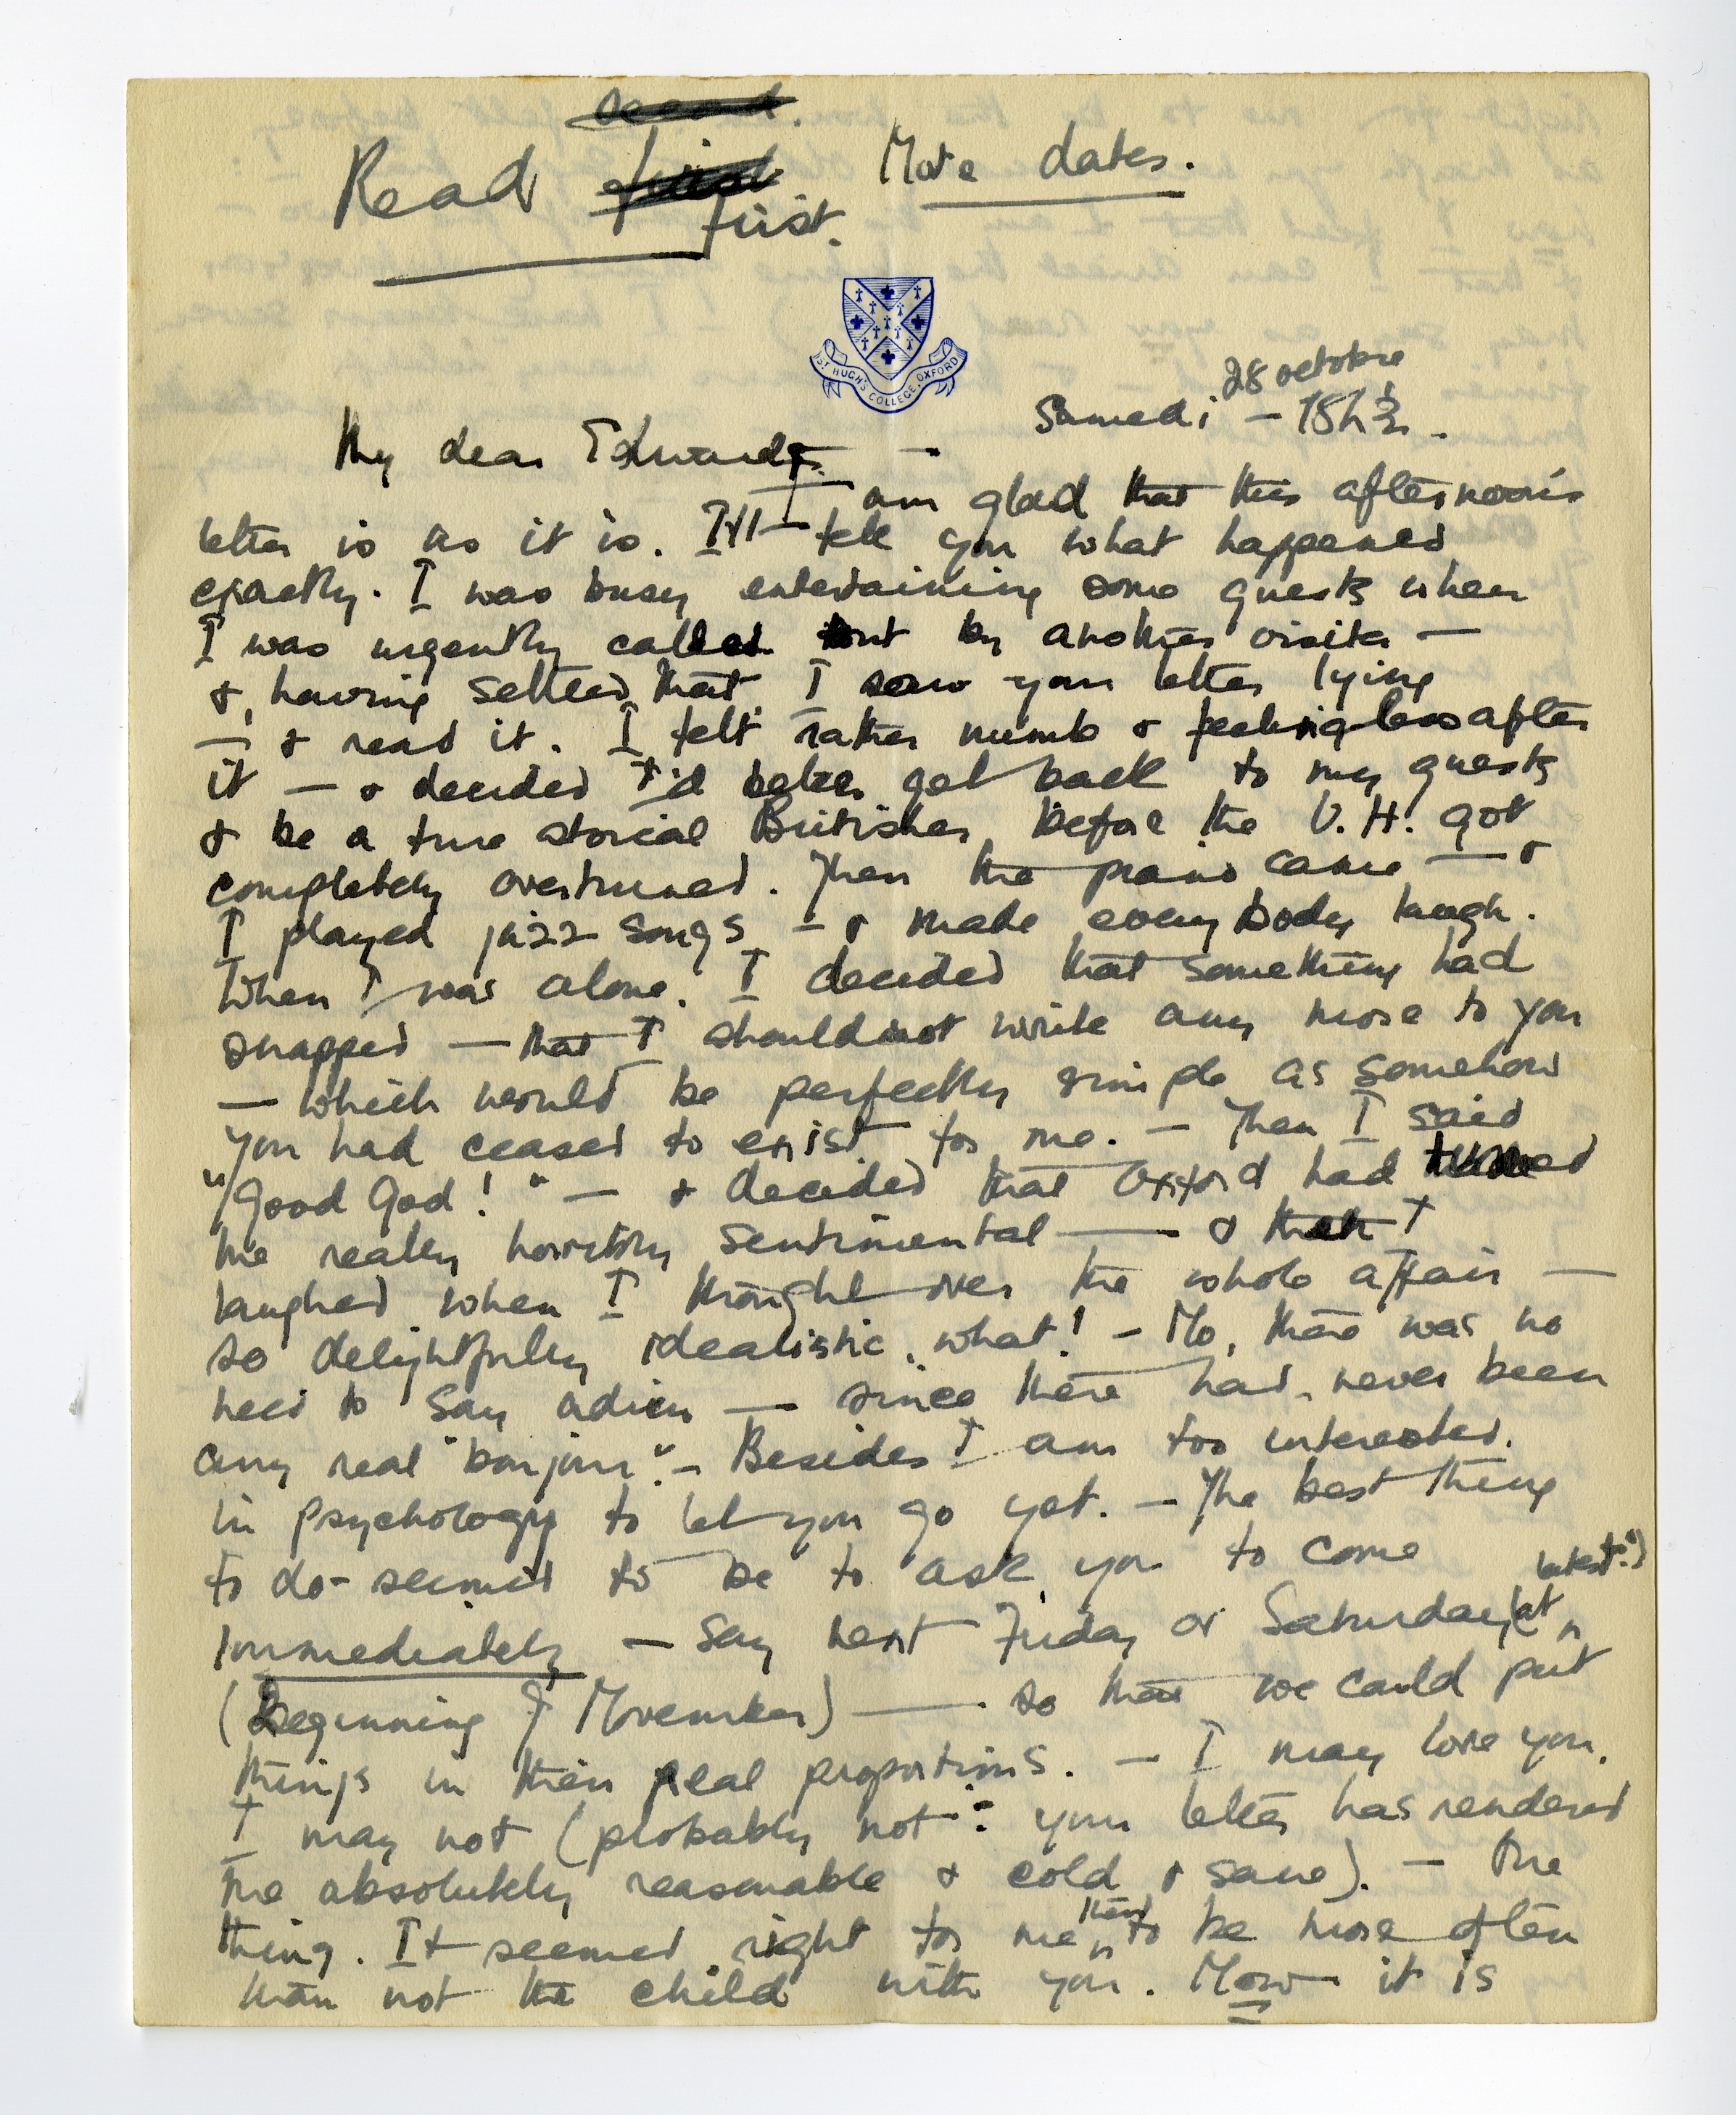 second.
Read first Note dates.
first.
ST HUGH'S COLLEGE, OXFORD
28 octobre
Samedi – 15h ½.
My dear Edward,
I am glad that this afternoon's
letter is as it is. I'll tell you what happened
exactly. I was busy entertaining some guests when
I was urgently called out by another visitor —
& having settled that, I saw your letter lying
— & read it. I felt rather numb & feelingless after
it — & decided I'd better get back to my guests
& be a true stoical Britisher, before the V.H. got
completely overturned. Then the piano came — &
I played jazz songs — & made everybody laugh.
When I was alone, I decided that something had
snapped — that I should not write any more to you
— which would be perfectly simple as somehow
you had ceased to exist for me. — Then I said
"Good God!" — & decided that Oxford had turned
me really horribly sentimental — & that I
laughed when I thought over the whole affair —
so delightfully idealistic, what! – No, there was no
need to say adieu — since there had never been
any real "bonjour". – Besides I am too interested
in psychology to let you go yet. — The best thing
to do seemed to be to ask you to come
latest.)
immediately — say next Friday or Saturday (at
(Beginning of November) — so that we could put
things in their real proportions. — I may love you,
I may not (probably not: your letter has rendered
me absolutely reasonable & cold & sane). — One
thing. It seemed right for me then to be more often
than not the child with you. Now it is